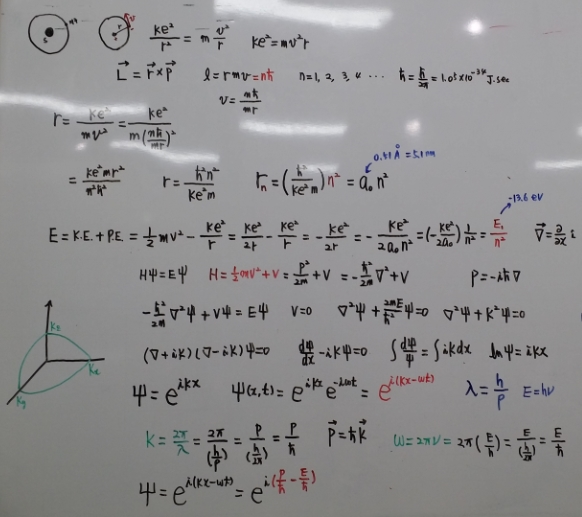 ke²/r² = m v²/r   ke² = mv²r
L⃗ = r⃗ × p⃗   ℓ = rmv = nħ   n = 1, 2, 3, 4 ...   ħ = h/2π = 1.05×10⁻³⁴ J·sec
v = nħ/mr
r = ke²/mv² = ke²/m(nħ/mr)²
0.51 Å = 5.1 nm
= ke²mr²/n²ħ²   r = ħ²n²/ke²m   rₙ = (ħ²/ke²m) n² = a₀n²
-13.6 eV
E = K.E. + P.E. = ½mv² - ke²/r = ke²/2r - ke²/r = -ke²/2r = -ke²/2a₀n² = (-ke²/2a₀) 1/n² = E₁/n²   ∇⃗ = ∂/∂x i
HΨ = EΨ   H = ½mv² + V = p²/2m + V = -ħ²/2m ∇² + V   P = -iħ∇
-ħ²/2m ∇²Ψ + VΨ = EΨ   V = 0   ∇²Ψ + 2mE/ħ² Ψ = 0   ∇²Ψ + k²Ψ = 0
(∇ + ik)(∇ - ik)Ψ = 0   dΨ/dx - ikΨ = 0   ∫dΨ/Ψ = ∫ik dx   ln Ψ = ikx
Ψ = e^{ikx}   Ψ(x,t) = e^{ikx} e^{-iωt} = e^{i(kx-ωt)}   λ = h/p   E = hν
k = 2π/λ = 2π/(h/p) = P/(h/2π) = P/ħ   p⃗ = ħk⃗   ω = 2πν = 2π(E/h) = E/(h/2π) = E/ħ
Ψ = e^{i(kx-ωt)} = e^{i(P/ħ - E/ħ)}
kz
ky